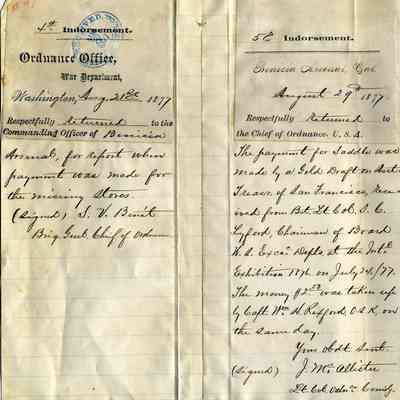 4th Indorsement.
Ordnance Office,
War Department,
Washington, Aug. 21st 1877
Respectfully returned to the
Commanding Officer of Benicia
Arsenal, for report when
payment was made for
the missing stores.
(Signed) S. V. Benét
Brig Genl. Chief of Ordnance
5th Indorsement.
Benicia Arsenal, Cal
August 29th 1877.
Respectfully returned to
the Chief of Ordnance U.S.A.
The payment for Saddle was
made by a Gold Draft on Asst.
Treasr. of San Francisco, rece
ived from Bvt. Lt Col. S. C.
Lyford, Chairman of Board
U.S. Exec. Depts. at the Intl.
Exhibition 1876 on July 24/77.
The money was taken up
by Capt. Wm. H. Rexford, O.S.K. on
the same day.
Your obdt. Servt.
(Signed) J. McAllister
Lt. Col. Ordnc. Comdg.